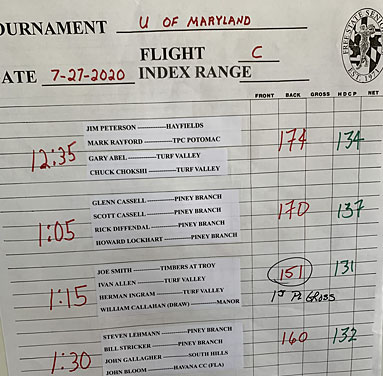 OURNAMENT U OF MARYLAND
FLIGHT C
ATE 7-27-2020 INDEX RANGE
FREE STATE SENI
EST. 197
FRONT BACK GROSS HDCP NET
JIM PETERSON ------------HAYFIELDS
MARK RAYFORD ------------TPC POTOMAC
12:35 174 134
GARY ABEL ------------TURF VALLEY
CHUCK CHOKSHI ------------TURF VALLEY
GLENN CASSELL ------------PINEY BRANCH
SCOTT CASSELL ------------PINEY BRANCH
1:05 170 137
RICK DIFFENDAL ------------PINEY BRANCH
HOWARD LOCKHART ------------PINEY BRANCH
JOE SMITH ------------TIMBERS AT TROY
IVAN ALLEN ------------TURF VALLEY
1:15 151 131
HERMAN INGRAM ------------TURF VALLEY
WILLIAM CALLAHAN (DRAW) ------------MANOR
1st Pl GROSS
STEVEN LEHMANN ------------PINEY BRANCH
BILL STRICKER ------------PINEY BRANCH
1:30 160 132
JOHN GALLAGHER ------------SOUTH HILLS
JOHN BLOOM ------------HAVANA CC (FLA)